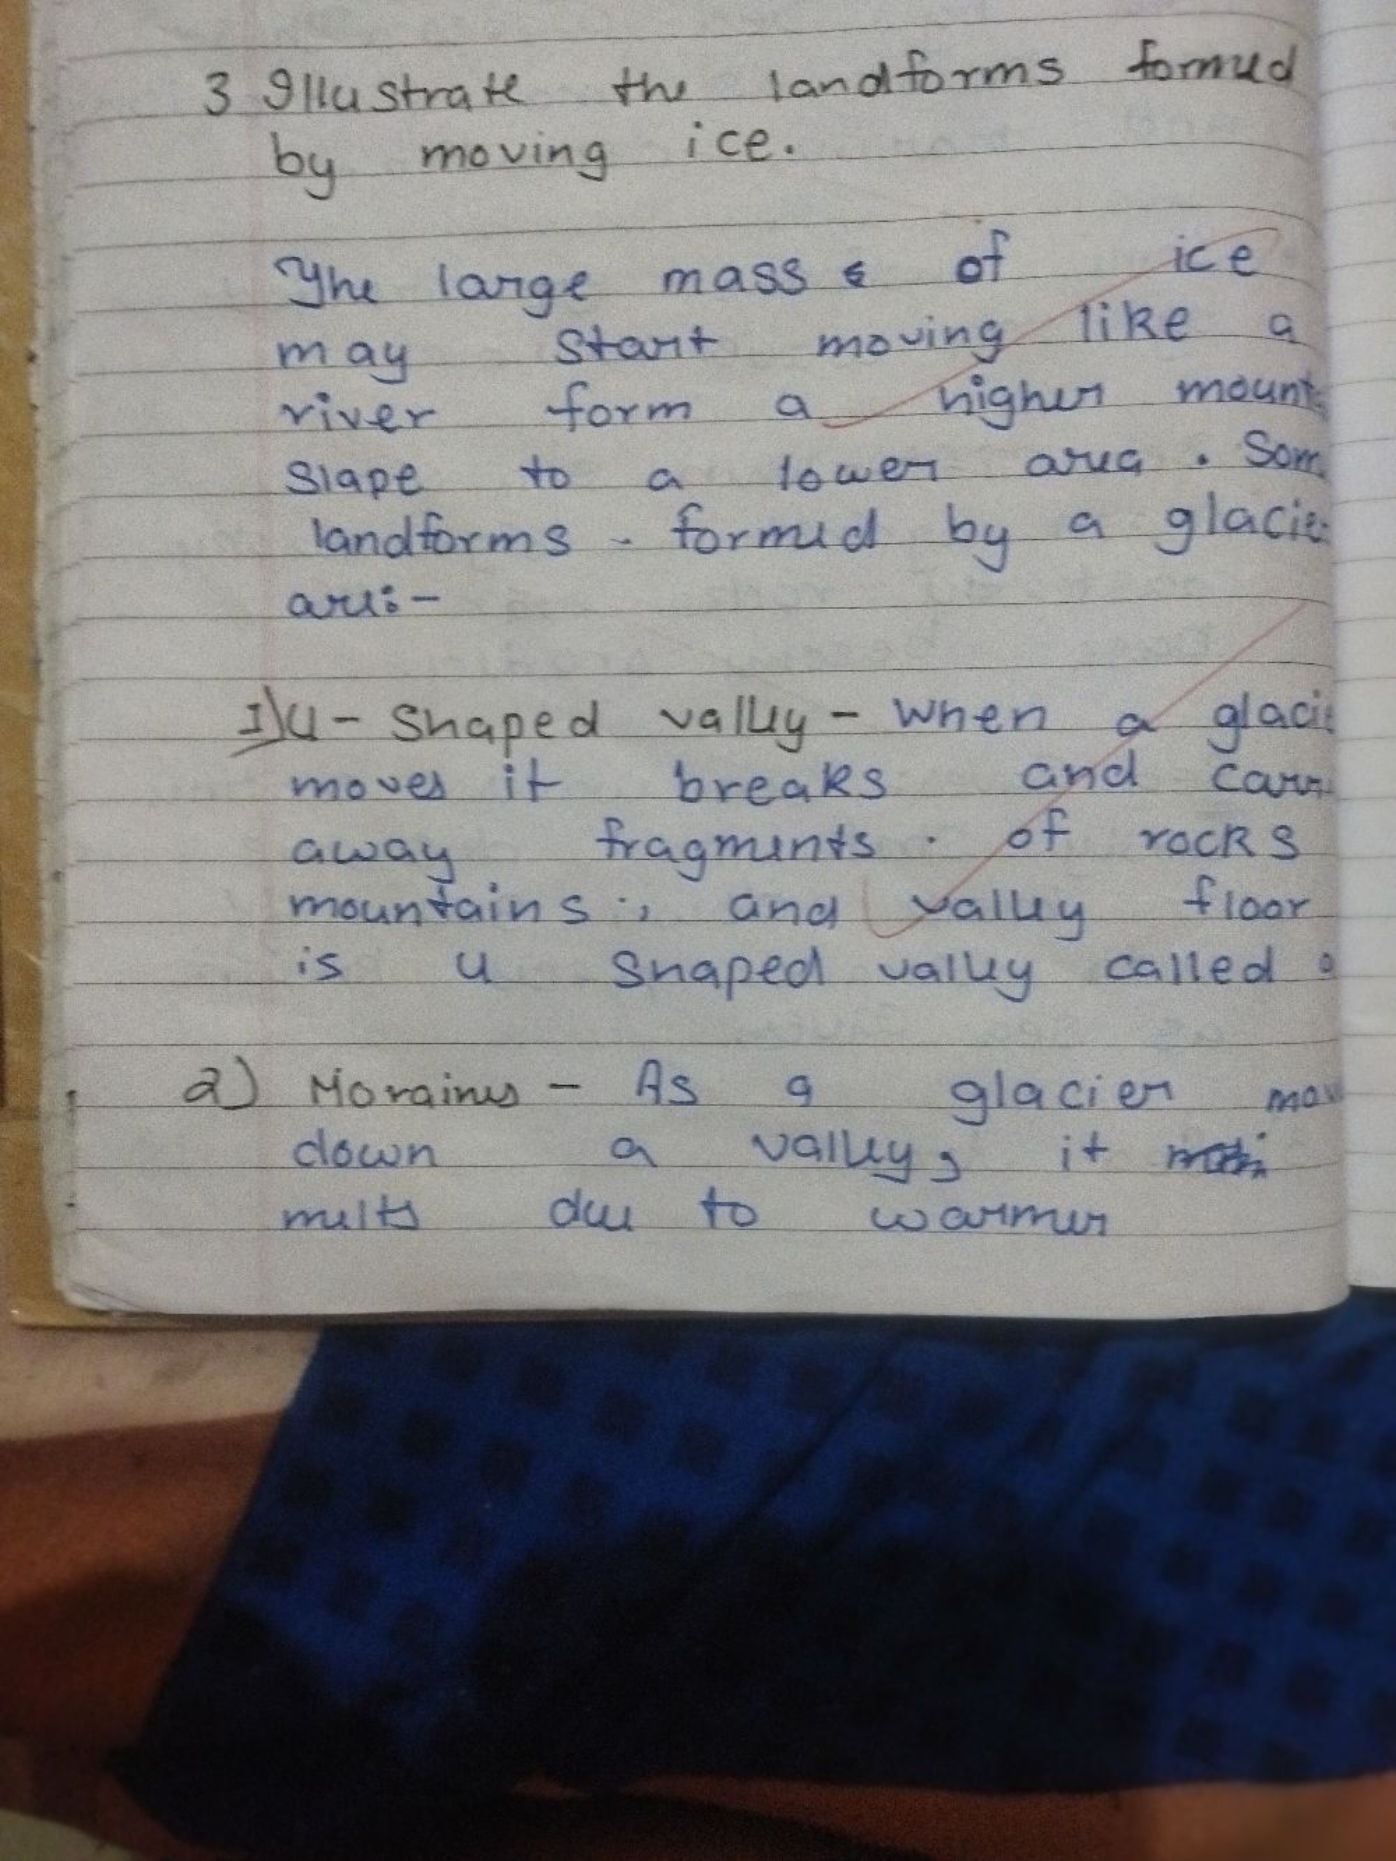 3 Illustrate the landforms formed
by moving ice.
The large mass of ice
may start moving like a
river form a higher mount
slape to a lower area. Som
landforms - formed by a glacie
are:-
1) U - Shaped valley - When a glaci
moves it breaks and carr
away fragments . of rocks
mountains ., and valley floor
is U shaped valley called a
2) Moraines - As a glacier mov
down a valley, it
melts due to warmer